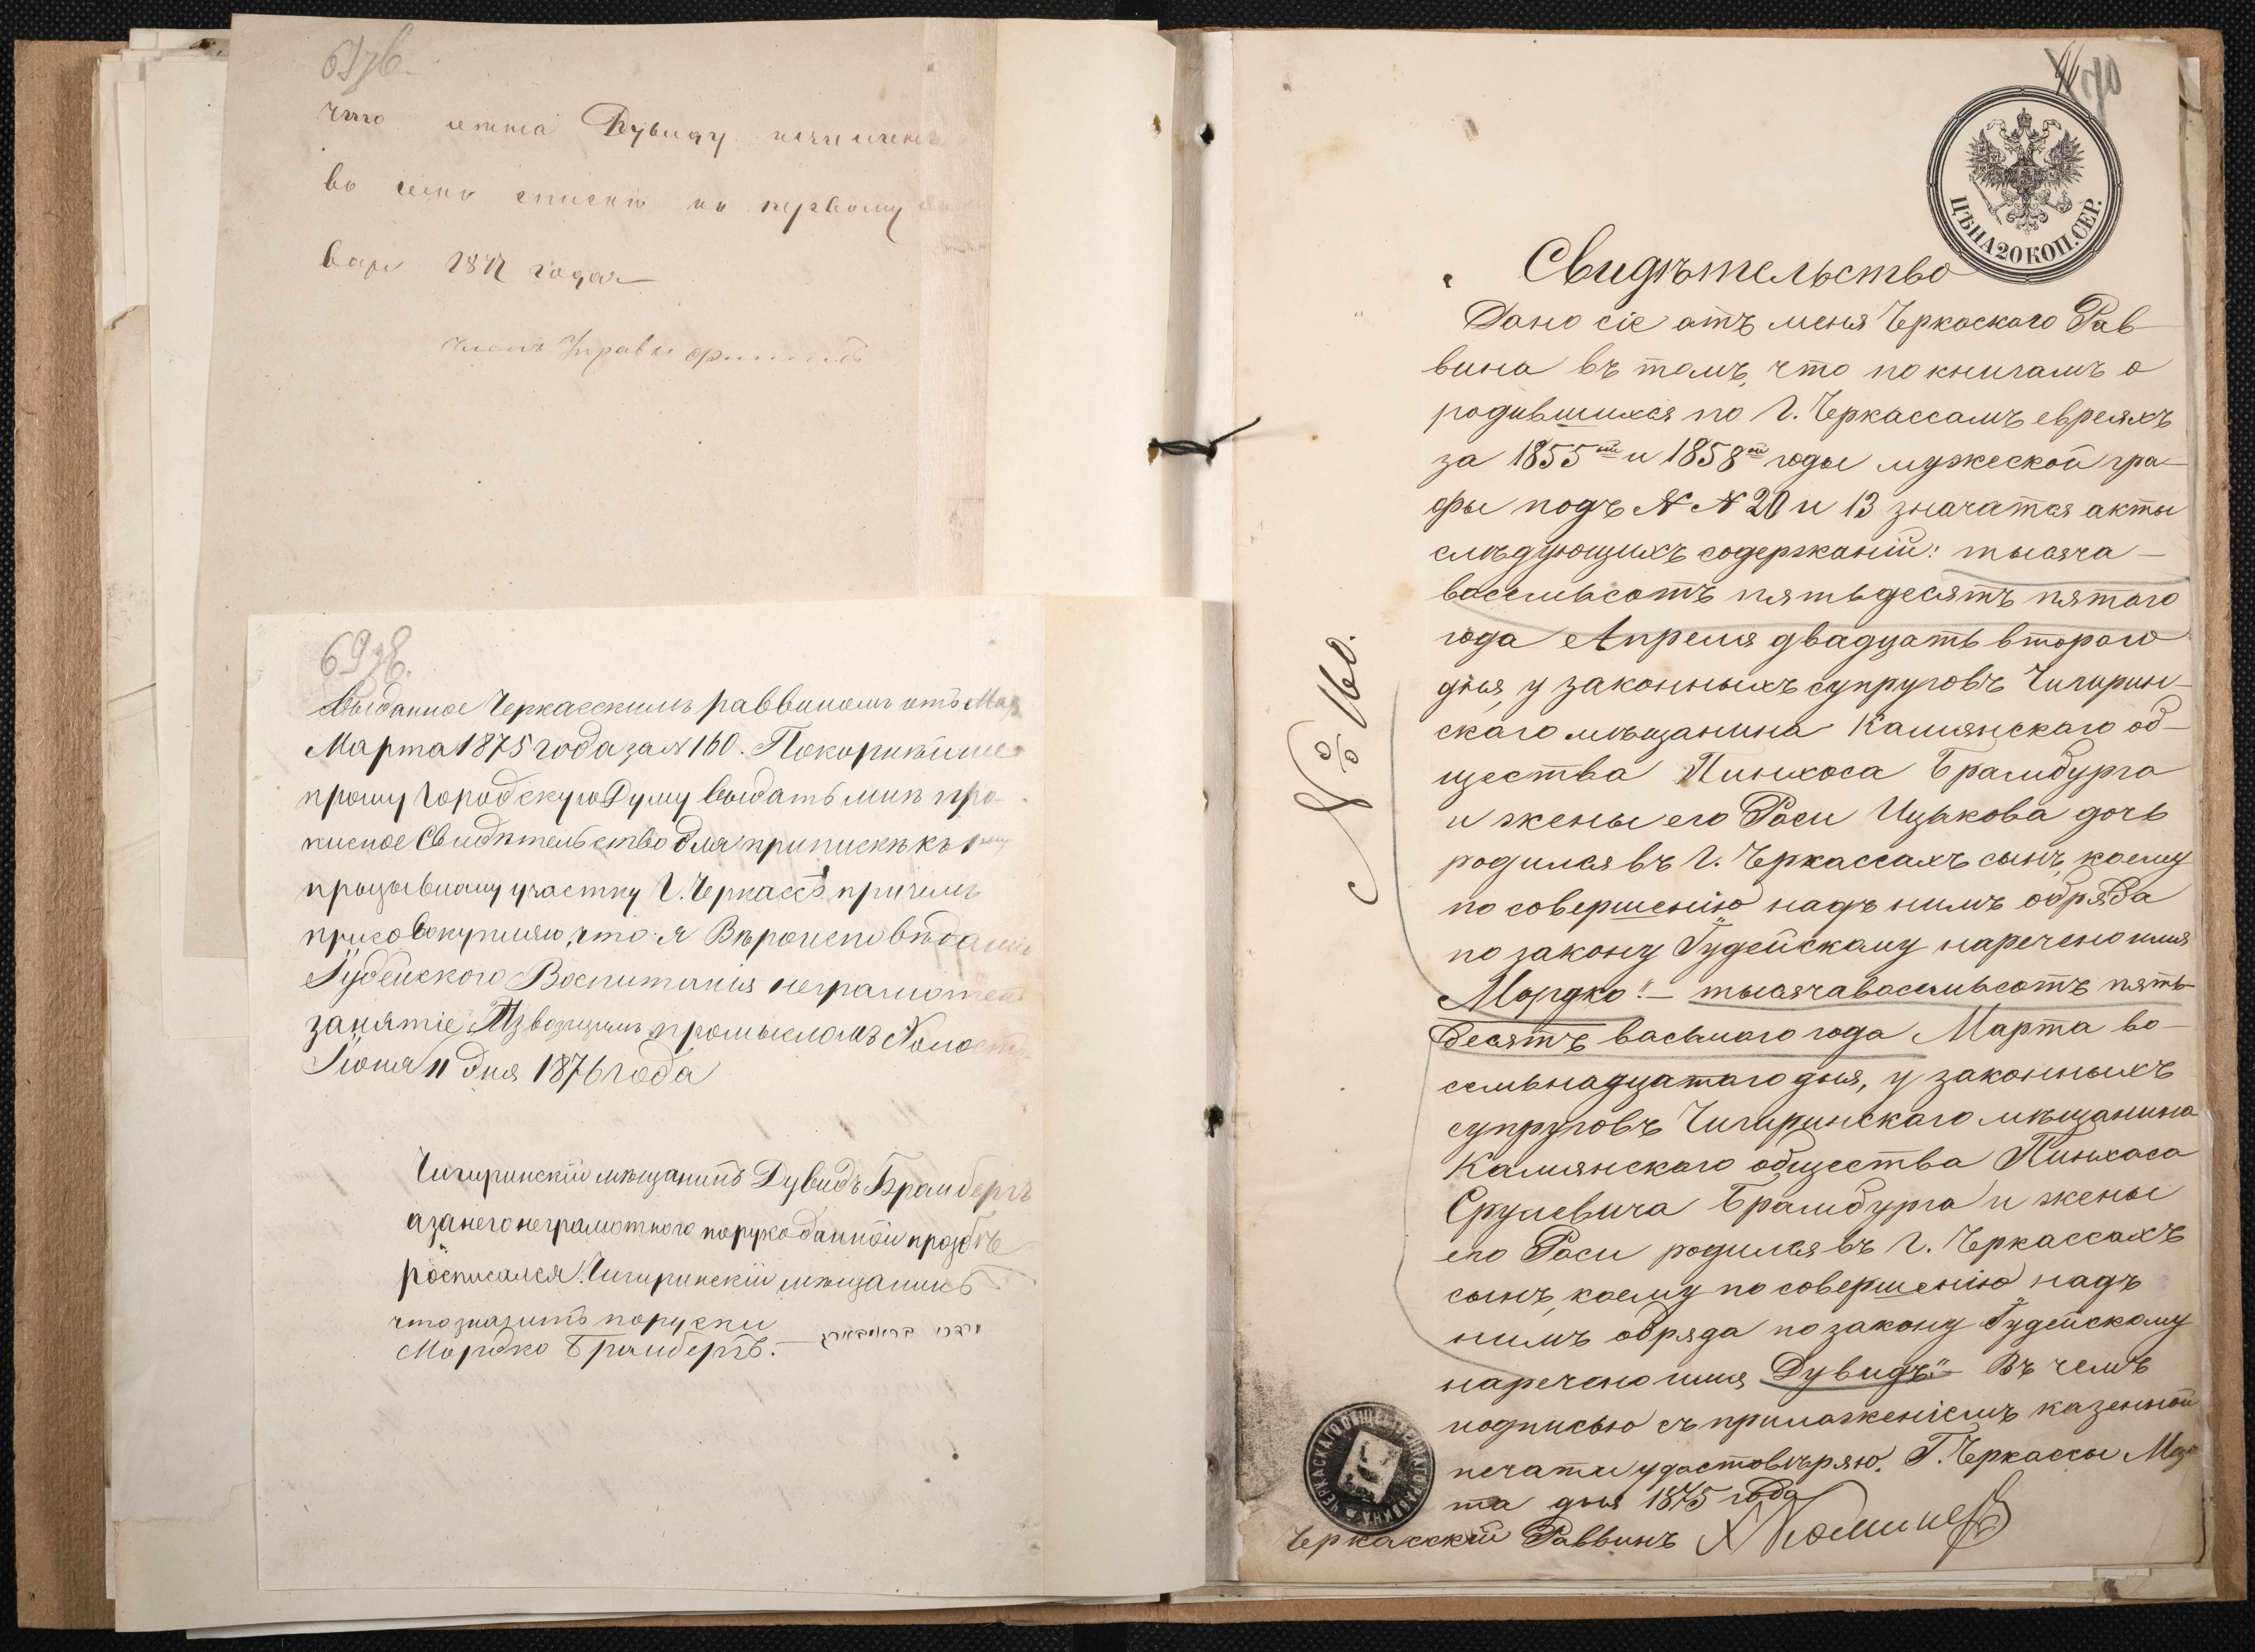 69 зв.
что
во семъ спискѣ къ первому
варя 1877 года
Членъ Управы
69 зв.
Выданное Черкасскимъ раввиномъ отъ
Марта 1875 года за № 160. Покорнѣйше
прошу Городскую Думу выдать мнѣ при-
писное Свидѣтельство для приписки къ 1
призывному участку Г. Черкассъ причемъ
присовокупляю, что я Вѣроисповѣданія
Іудейского Воспитанія неграмотенъ
занятіе Извозчимъ промысломъ Холостъ
Іюня 11 дня 1876 года
Чигиринскій мѣщанинъ Дувидъ Брамбергъ
а за него неграмотного по рукоданной прозбѣ
росписался Чигиринскій мѣщанинъ
что значитъ поруски
Мордко Брамбергъ. —
70
ЦѢНА 20 КОП. СЕР.
Свидѣтельство
Дано сіе отъ меня Черкаскаго Рав-
вина въ томъ, что по книгамъ о
родившихся по Г. Черкассамъ евреяхъ
за 1855й и 1858й годы мужеской гра-
фы подъ N N 20 и 13 значатся акты
слѣдующихъ содержаній: тысяча —
восемьсотъ пятьдесятъ пятого
года Апреля двадцать второго
дня, у законныхъ супруговъ Чигирин-
скаго мѣщанина Камянскаго об-
щества Пинхоса Брамбурга
и жены его Раси Ицькова дочь
родился въ Г. Черкассахъ сынъ, коему
по совершенію надъ нимъ обряда
по закону Іудейскому наречено имя
Мордко" — тысячавосемьсотъ пять-
десятъ васьмого года Марта во-
семьнадцатаго дня, у законныхъ
супруговъ Чигиринскаго мѣщанина
Камянскаго общества Пинхаса
Срулевича Брамбурга и жены
его Раси родился въ Г. Черкассахъ
сынъ, коему по совершенію надъ
нимъ обряда по закону Іудейскому
наречено имя Дувидъ" — Въ чемъ
подписью съ приложеніемъ казенной
печати удостовѣряю. Г. Черкассы Мар-
та дня 1875 года
Черкасскій Раввинъ
№ 160.
ЧЕРКАСКАГО ОБЩЕСТВЕННАГО РАВВИНА